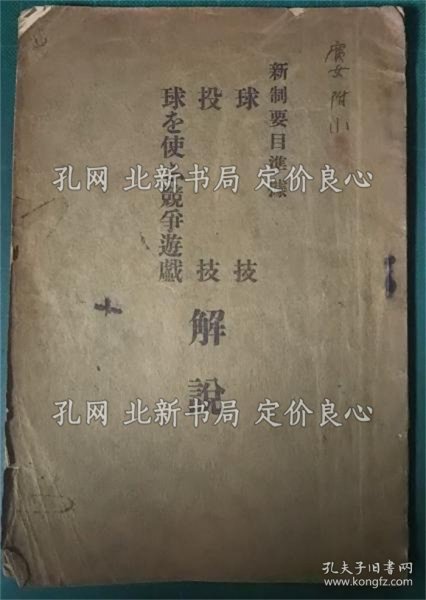 廣女附小
新制要目準據
球技
投技
球を使ふ競爭遊戲
解說
孔网 北新书局 定价良心
孔网 北新书局 定价良心
孔网 北新书局 定价良心
孔夫子旧书网
www.kongfz.com